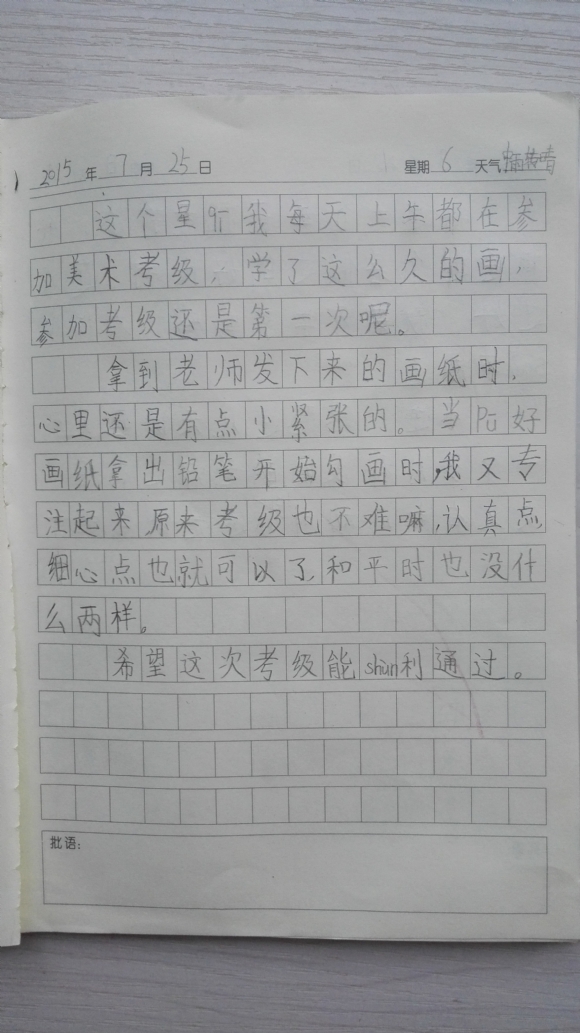 2015 年 7 月 25 日 星期 6 天气
这个星qī我每天上午都在参
加美术考级,学了这么久的画,
参加考级还是第一次呢。
拿到老师发下来的画纸时,
心里还是有点小紧张的。当pū好
画纸拿出铅笔开始勾画时,我又专
注起来原来考级也不难嘛,认真点,
细心点也就可以了,和平时也没什
么两样。
希望这次考级能shùn利通过。
批语: